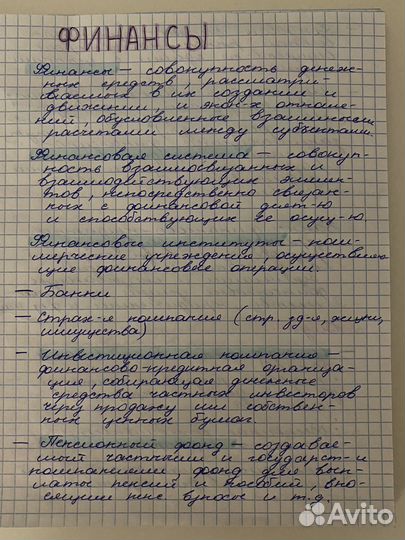 ФИНАНСЫ
Финансы – совокупность денеж-
ных средств, рассматри-
ваемых в их создании и
движении и экон-х отноше-
ний, обусловленные взаимными
расчетами между субъектами.
Финансовая система – совокуп-
ность взаимосвязанных и
взаимодействующих элемен-
тов, непосредственно связан-
ных с финансовой деят-ю
и способствующих ее осущ-ю.
Финансовые институты – ком-
мерческие учреждения, осуществляю
щие финансовые операции.
– Банки
– Страх-я компания (стр. зд-я, жизни,
имущества)
– Инвестиционная компания –
финансово-кредитная организа-
ция, собирающая денежные
средства частных инвесторов
через продажу им собствен-
ных ценных бумаг.
– Пенсионный фонд – создавае-
мый частными и государст-и
компаниями, фонд для вып-
латы пенсий и пособий, вно-
сящим пенс. взносы и т.д.
Avito